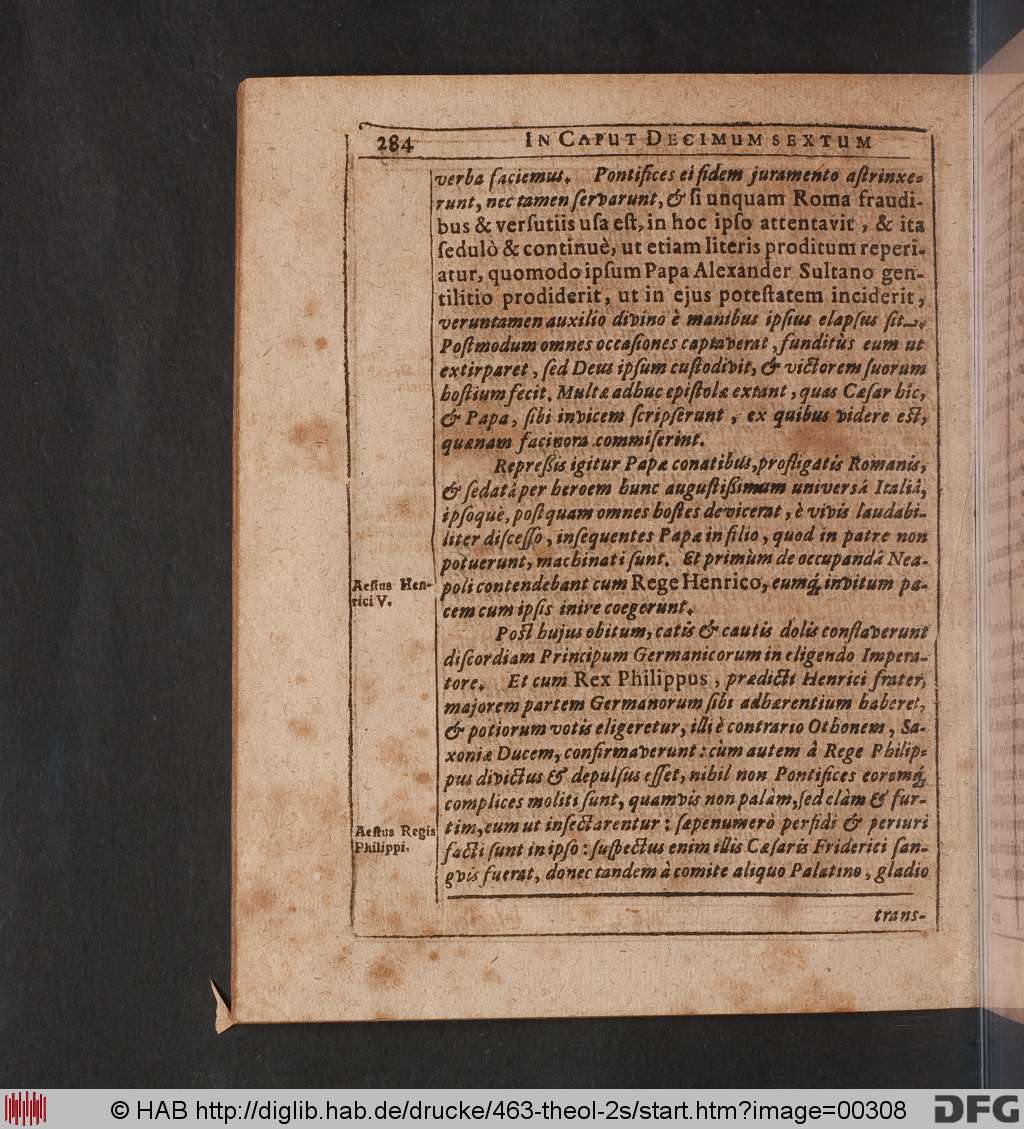 284 IN CAPUT DECIMUM SEXTUM
verba faciemus. Pontifices ei fidem juramento aſtrinxe-
runt, nec tamen ſervarunt, & ſi unquam Roma fraudi-
bus & verſutiis uſa eſt, in hoc ipſo attentavit, & ita
ſedulò & continuè, ut etiam literis proditum reperi-
atur, quomodo ipſum Papa Alexander Sultano gen-
tilitio prodiderit, ut in ejus poteſtatem inciderit,
veruntamen auxilio divino è manibus ipſius elapſus ſit.
Poſtmodum omnes occaſiones captaverat, funditùs eum ut
extirparet, ſed Deus ipſum cuſtodivit, & victorem ſuorum
hoſtium fecit. Multæ adhuc epiſtolæ extant, quas Cæſar hic,
& Papa, ſibi invicem ſcripſerunt, ex quibus videre eſt,
quænam facinora commiſerint.
Repreſſis igitur Papæ conatibus, profligatis Romanis,
& ſedatâ per heroem hunc auguſtiſſimum universâ Italiâ,
ipſoquè, poſtquam omnes hoſtes devicerat, è vivis laudabi-
liter diſceſſo, inſequentes Papæ in filio, quod in patre non
potuerunt, machinati ſunt. Et primùm de occupandâ Nea-
Aeſtus Hen-
rici V.
poli contendebant cum Rege Henrico, eumq́; invitum pa-
cem cum ipſis inire coegerunt.
Poſt hujus obitum, catis & cautis dolis conflaverunt
diſcordiam Principum Germanicorum in eligendo Impera-
tore. Et cum Rex Philippus, prædicti Henrici frater,
majorem partem Germanorum ſibi adhærentium haberet,
& potiorum votis eligeretur, illi è contrario Othonem, Sa-
xoniæ Ducem, confirmaverunt: cùm autem à Rege Philip-
pus divictus & depulſus eſſet, nihil non Pontifices eorumq́;
complices moliti ſunt, quamvis non palàm, ſed clàm & fur-
Aeſtus Regis
Philippi.
tim, eum ut inſectarentur: ſæpenumerò perfidi & periuri
facti ſunt in ipſo: ſuſpectus enim illis Cæſaris Friderici ſan-
gvis fuerat, donec tandem à comite aliquo Palatino, gladio
trans-
© HAB http://diglib.hab.de/drucke/463-theol-2s/start.htm?image=00308 DFG